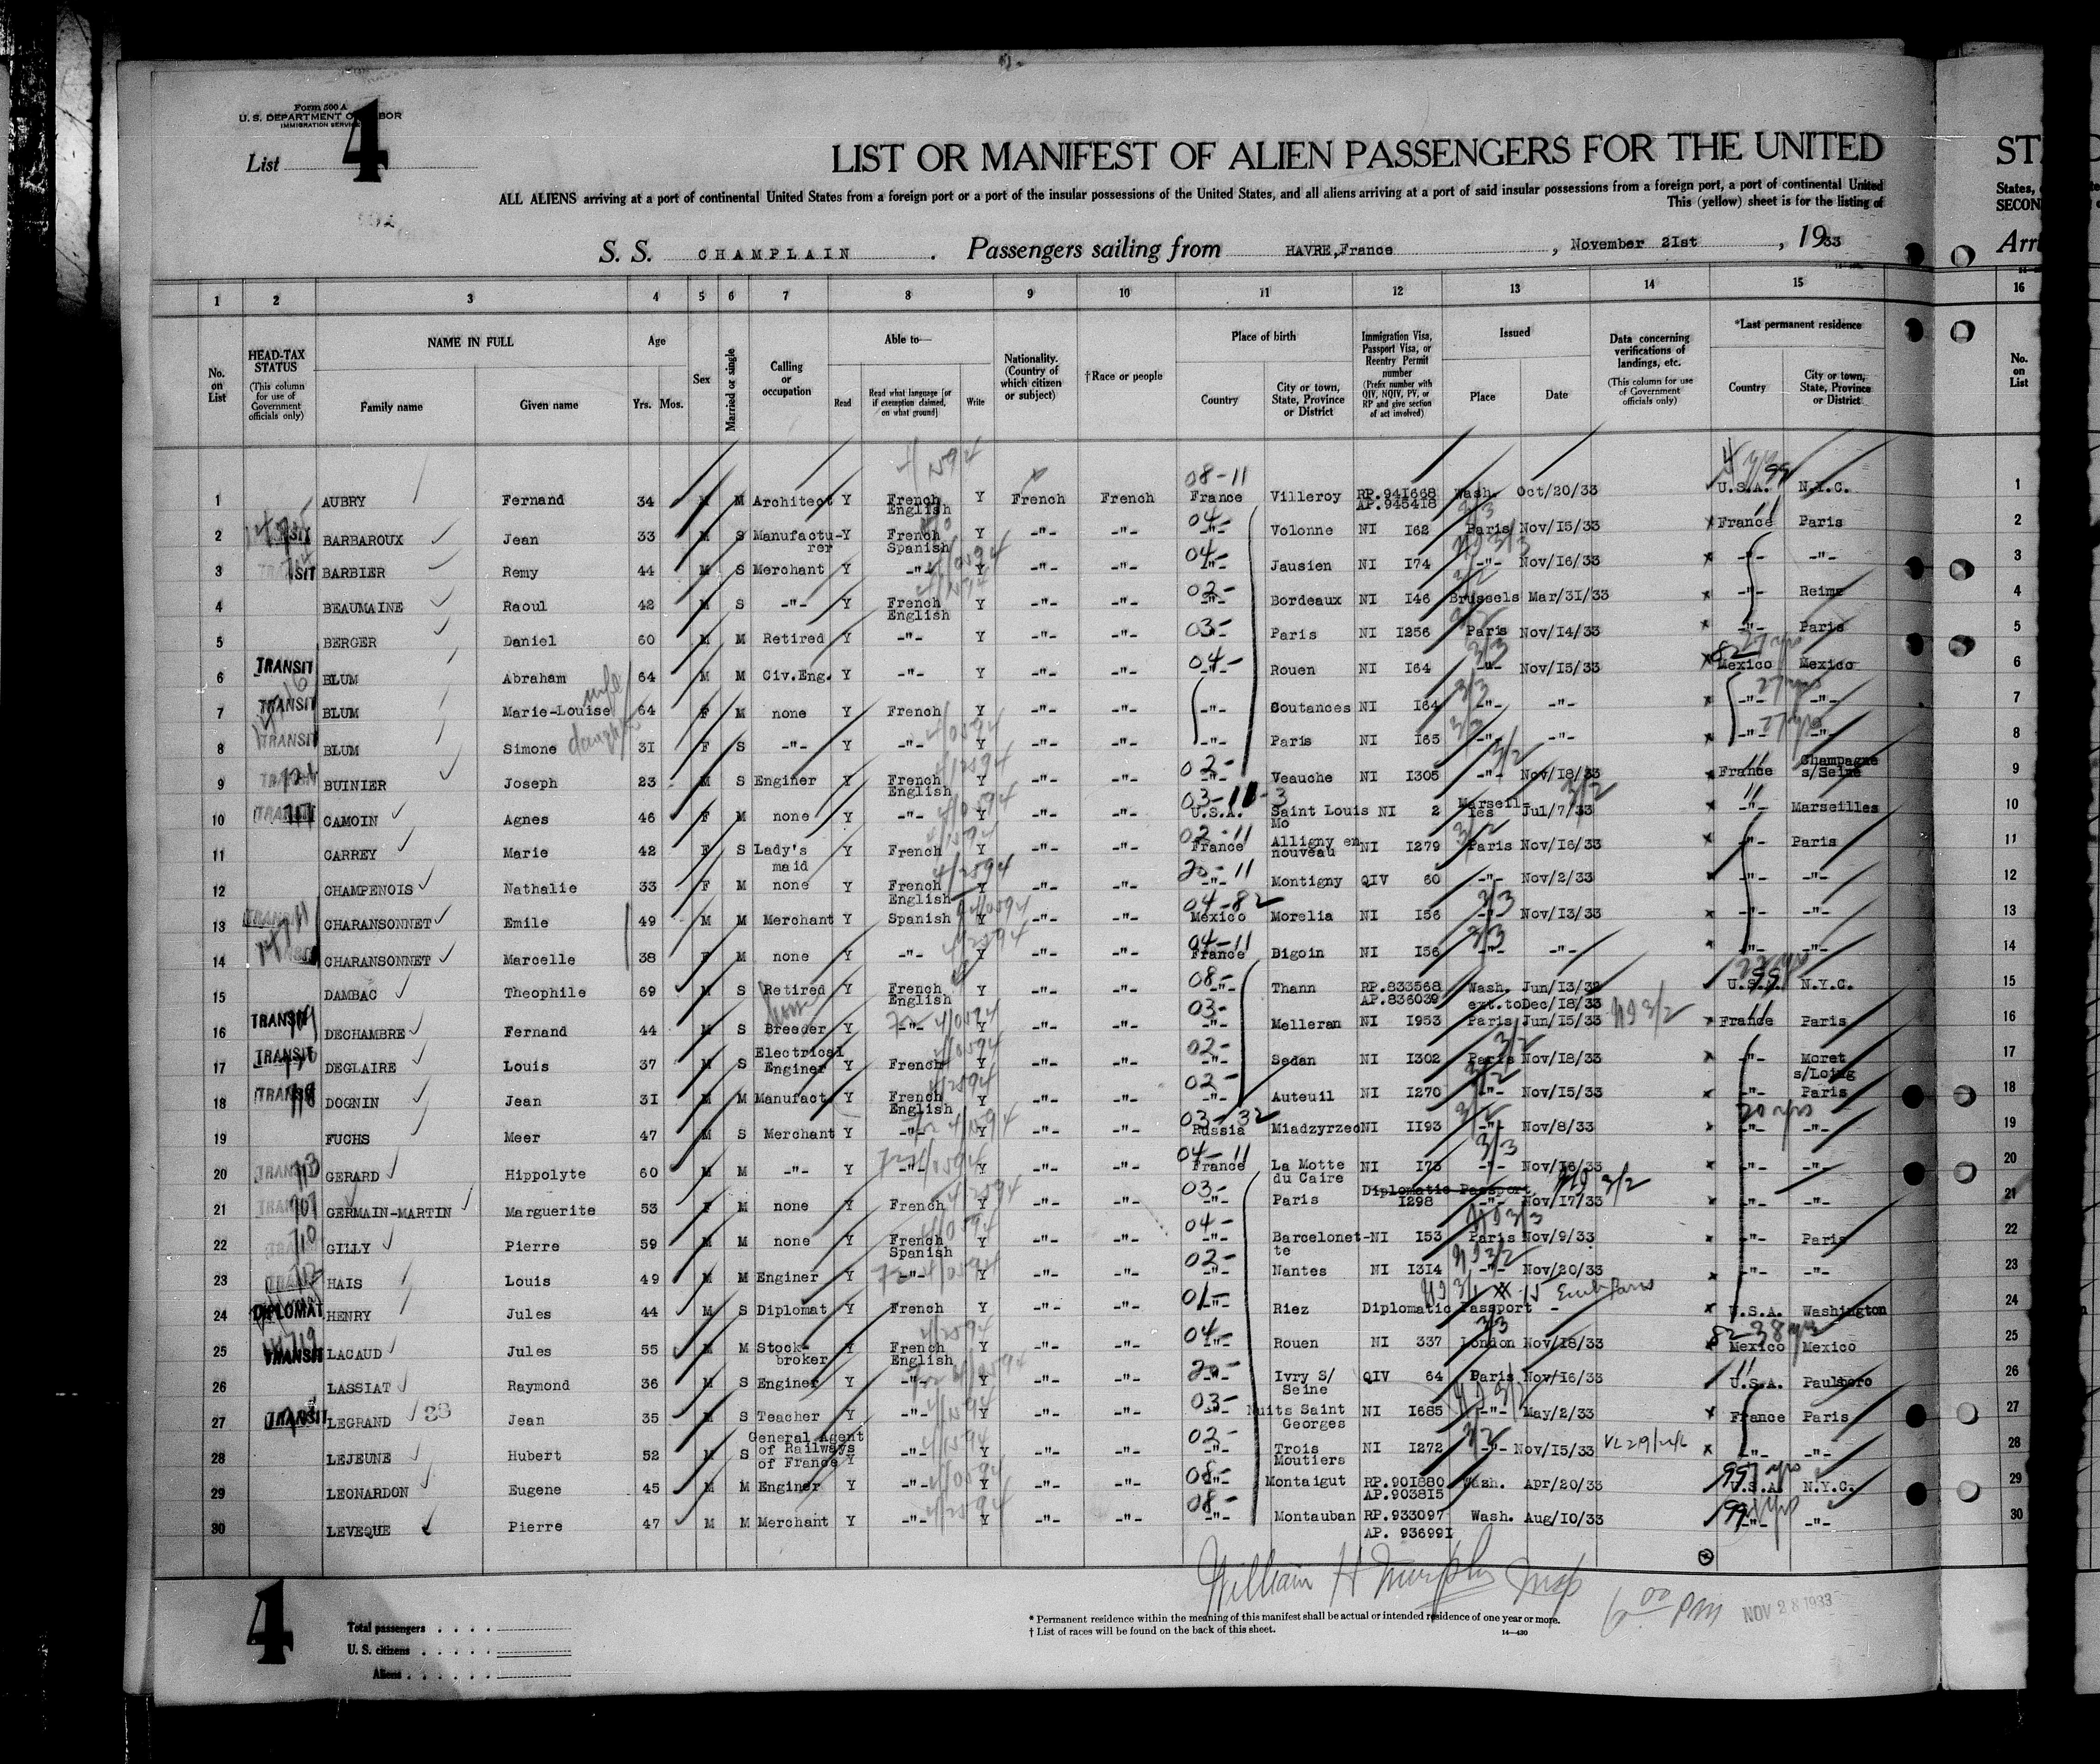 Form 500 A
U. S. DEPARTMENT OF LABOR
IMMIGRATION SERVICE
List 4
LIST OR MANIFEST OF ALIEN PASSENGERS FOR THE UNITED
ALL ALIENS arriving at a port of continental United States from a foreign port or a port of the insular possessions of the United States, and all aliens arriving at a port of said insular possessions from a foreign port, a port of continental United
This (yellow) sheet is for the listing of
S. S. CHAMPLAIN . Passengers sailing from HAVRE, France , November 2Ist , 1933
1 2 3 4 5 6 7 8 9 10 11 12 13 14 15
No. on List
HEAD-TAX STATUS (This column for use of Government officials only)
NAME IN FULL Family name Given name
Age Yrs. Mos.
Sex
Married or single
Calling or occupation
Able to— Read Read what language [or if exemption claimed, on what ground] Write
Nationality. (Country of which citizen or subject)
†Race or people
Place of birth Country City or town, State, Province or District
Immigration Visa, Passport Visa, or Reentry Permit number (Prefix number with QIV, NQIV, PV, or RP and give section of act involved)
Issued Place Date
Data concerning verifications of landings, etc. (This column for use of Government officials only)
*Last permanent residence Country City or town, State, Province or District
1 AUBRY Fernand 34 M M Architect Y French English Y French French 08-11 France Villeroy RP.941668 AP.945418 Wash. Oct/20/33 U.S.A. N.Y.C. 1
2 BARBAROUX Jean 33 M S Manufacturer Y French Spanish Y -"- -"- 04- -"- Volonne NI I62 Paris Nov/I5/33 France Paris 2
3 TRANSIT BARBIER Remy 44 M S Merchant Y -"- Y -"- -"- 04- -"- Jausien NI I74 -"- Nov/I6/33 -"- -"- 3
4 BEAUMAINE Raoul 42 M S -"- Y French English Y -"- -"- 02- -"- Bordeaux NI I46 Brussels Mar/31/33 -"- Reims 4
5 BERGER Daniel 60 M M Retired Y -"- Y -"- -"- 03- -"- Paris NI I256 Paris Nov/I4/33 -"- Paris 5
6 TRANSIT BLUM Abraham 64 M M Civ.Eng. Y -"- Y -"- -"- 04- -"- Rouen NI I64 -"- Nov/I5/33 82 Mexico Mexico 6
7 TRANSIT BLUM Marie-Louise wife 64 F M none Y French Y -"- -"- -"- Coutances NI I64 -"- -"- -"- -"- 7
8 TRANSIT BLUM Simone daughter 3I F S -"- Y -"- Y -"- -"- -"- Paris NI I65 -"- -"- -"- -"- 8
9 BUINIER Joseph 23 M S Enginer Y French English Y -"- -"- 02- -"- Veauche NI I305 -"- Nov/I8/33 France Champagne s/Seine 9
10 CAMOIN Agnes 46 F M none Y -"- Y -"- -"- U.S.A. Saint Louis Mo NI 2 Marseilles Jul/7/33 -"- Marseilles 10
11 CARREY Marie 42 F S Lady's maid Y French Y -"- -"- 02-11 France Alligny en nouveau NI I279 Paris Nov/I6/33 -"- Paris 11
12 CHAMPENOIS Nathalie 33 F M none Y French English Y -"- -"- 20-11 -"- Montigny QIV 60 -"- Nov/2/33 -"- -"- 12
13 TRANSIT CHARANSONNET Emile 49 M M Merchant Y Spanish Y -"- -"- 04-82 Mexico Morelia NI I56 -"- Nov/I3/33 -"- -"- 13
14 CHARANSONNET Marcelle 38 F M none Y -"- Y -"- -"- 04-11 France Bigoin NI I56 -"- -"- -"- -"- 14
15 DAMBAC Theophile 69 M S Retired Y French English Y -"- -"- 08- -"- Thann RP.833568 AP.836039 Wash. Jun/I3/32 ext.to Dec/I8/33 U.S.A. N.Y.C. 15
16 TRANSIT DECHAMBRE Fernand 44 M S horse Breeder Y -"- Y -"- -"- 03- -"- Melleran NI I953 Paris Jun/I5/33 France Paris 16
17 TRANSIT DEGLAIRE Louis 37 M S Electrical Enginer Y French Y -"- -"- 02- -"- Sedan NI I302 Paris Nov/I8/33 -"- Moret s/Loing 17
18 TRANSIT DOGNIN Jean 3I M M Manufact. Y French English Y -"- -"- 02- -"- Auteuil NI I270 -"- Nov/I5/33 -"- Paris 18
19 FUCHS Meer 47 M S Merchant Y -"- Y -"- -"- 03-32 Russia Miadzyrzec NI II93 -"- Nov/8/33 -"- -"- 19
20 TRANSIT GERARD Hippolyte 60 M M -"- Y -"- Y -"- -"- 04-11 France La Motte du Caire NI I75 -"- Nov/I6/33 -"- -"- 20
21 TRANSIT GERMAIN-MARTIN Marguerite 53 F M none Y French Y -"- -"- 03- -"- Paris Diplomatic Passport I298 -"- Nov/I7/33 -"- -"- 21
22 TRANSIT GILLY Pierre 59 M M none Y French Spanish Y -"- -"- 04- -"- Barcelonette NI I53 Paris Nov/9/33 -"- Paris 22
23 TRANSIT HAIS Louis 49 M M Enginer Y -"- Y -"- -"- 02- -"- Nantes NI I3I4 -"- Nov/20/33 -"- -"- 23
24 DIPLOMAT HENRY Jules 44 M S Diplomat Y French Y -"- -"- 01- -"- Riez Diplomatic Passport - U.S.A. Washington 24
25 TRANSIT LACAUD Jules 55 M M Stock-broker Y French English Y -"- -"- 04- -"- Rouen NI 337 London Nov/I8/33 82 Mexico Mexico 25
26 LASSIAT Raymond 36 M S Enginer Y -"- Y -"- -"- 20- -"- Ivry S/ Seine QIV 64 Paris Nov/I6/33 U.S.A. Paulsboro 26
27 TRANSIT LEGRAND Jean 35 M S Teacher Y -"- Y -"- -"- 03- -"- Nuits Saint Georges NI I685 -"- May/2/33 France Paris 27
28 LEJEUNE Hubert 52 M S General Agent of Railways of France Y -"- Y -"- -"- 02- -"- Trois Moutiers NI I272 -"- Nov/I5/33 -"- -"- 28
29 LEONARDON Eugene 45 M M Enginer Y -"- Y -"- -"- 08- -"- Montaigut RP.90I880 AP.9038I5 Wash. Apr/20/33 U.S.A. N.Y.C. 29
30 LEVEQUE Pierre 47 M M Merchant Y -"- Y -"- -"- 08- -"- Montauban RP.933097 AP. 93699I Wash. Aug/I0/33 -"- -"- 30
William H Murphy
6 00 PM NOV 28 1933
4
Total passengers
U. S. citizens
Aliens
* Permanent residence within the meaning of this manifest shall be actual or intended residence of one year or more.
† List of races will be found on the back of this sheet.
14—430
States,
SECON
Arri
16
No. on List